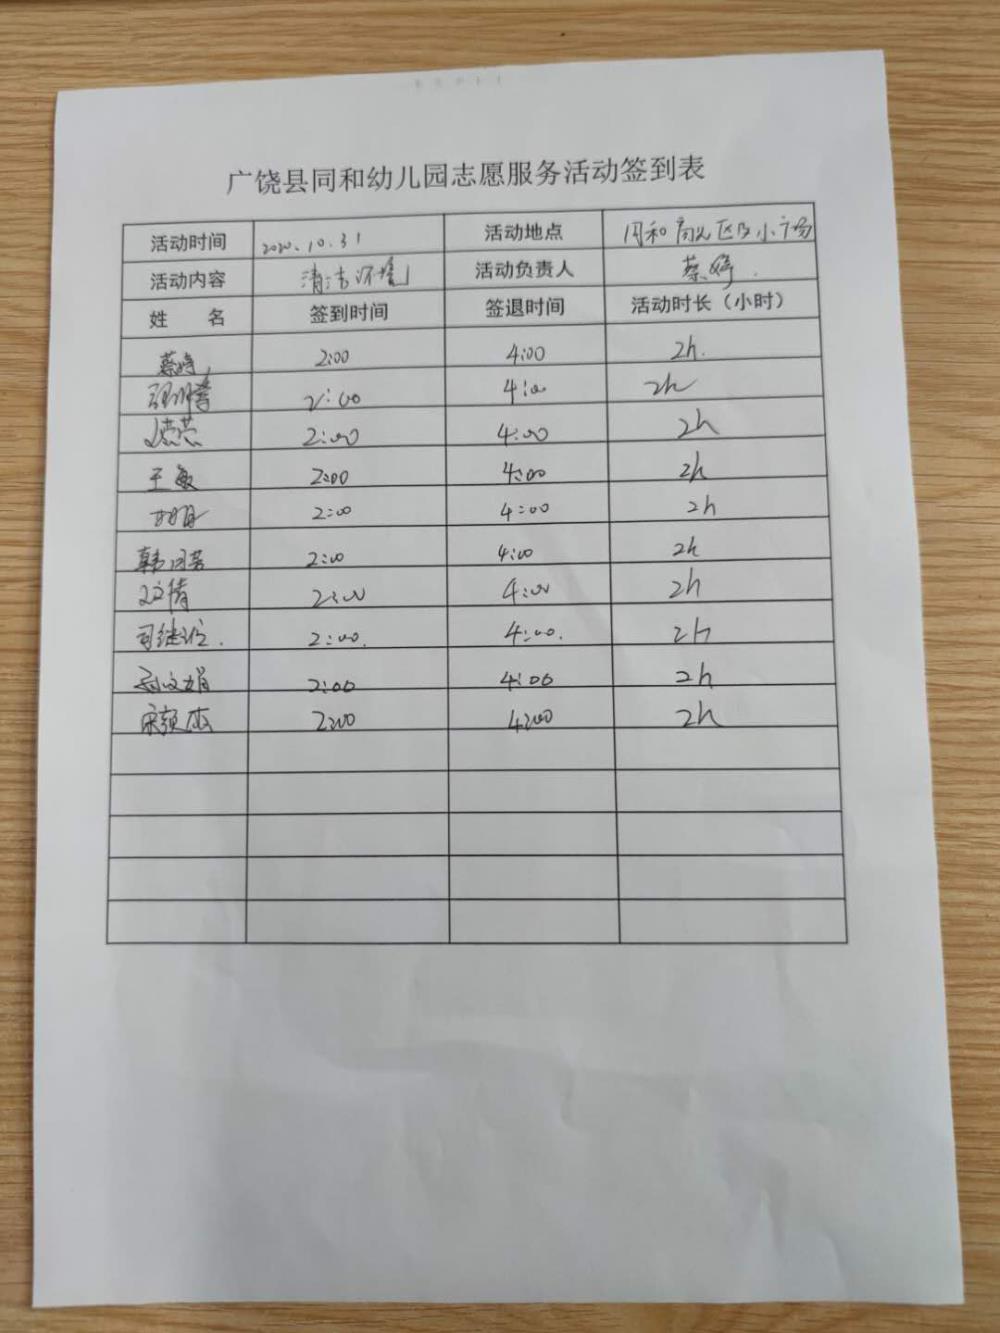 广饶县同和幼儿园志愿服务活动签到表
活动时间 2020.10.31 活动地点 同和 区及小广场
活动内容 清洁环境 活动负责人 蔡婷.
姓 名 签到时间 签退时间 活动时长（小时）
蔡婷 2:00 4:00 2h.
2:00 4:00 2h
2:00 4:00 2h
王敏 2:00 4:00 2h
2:00 4:00 2h
韩 2:00 4:00 2h
文倩 2:00 4:00 2h
司继 2:00. 4:00. 2h
孙文娟 2:00 4:00 2h
宋 2:00 4:00 2h